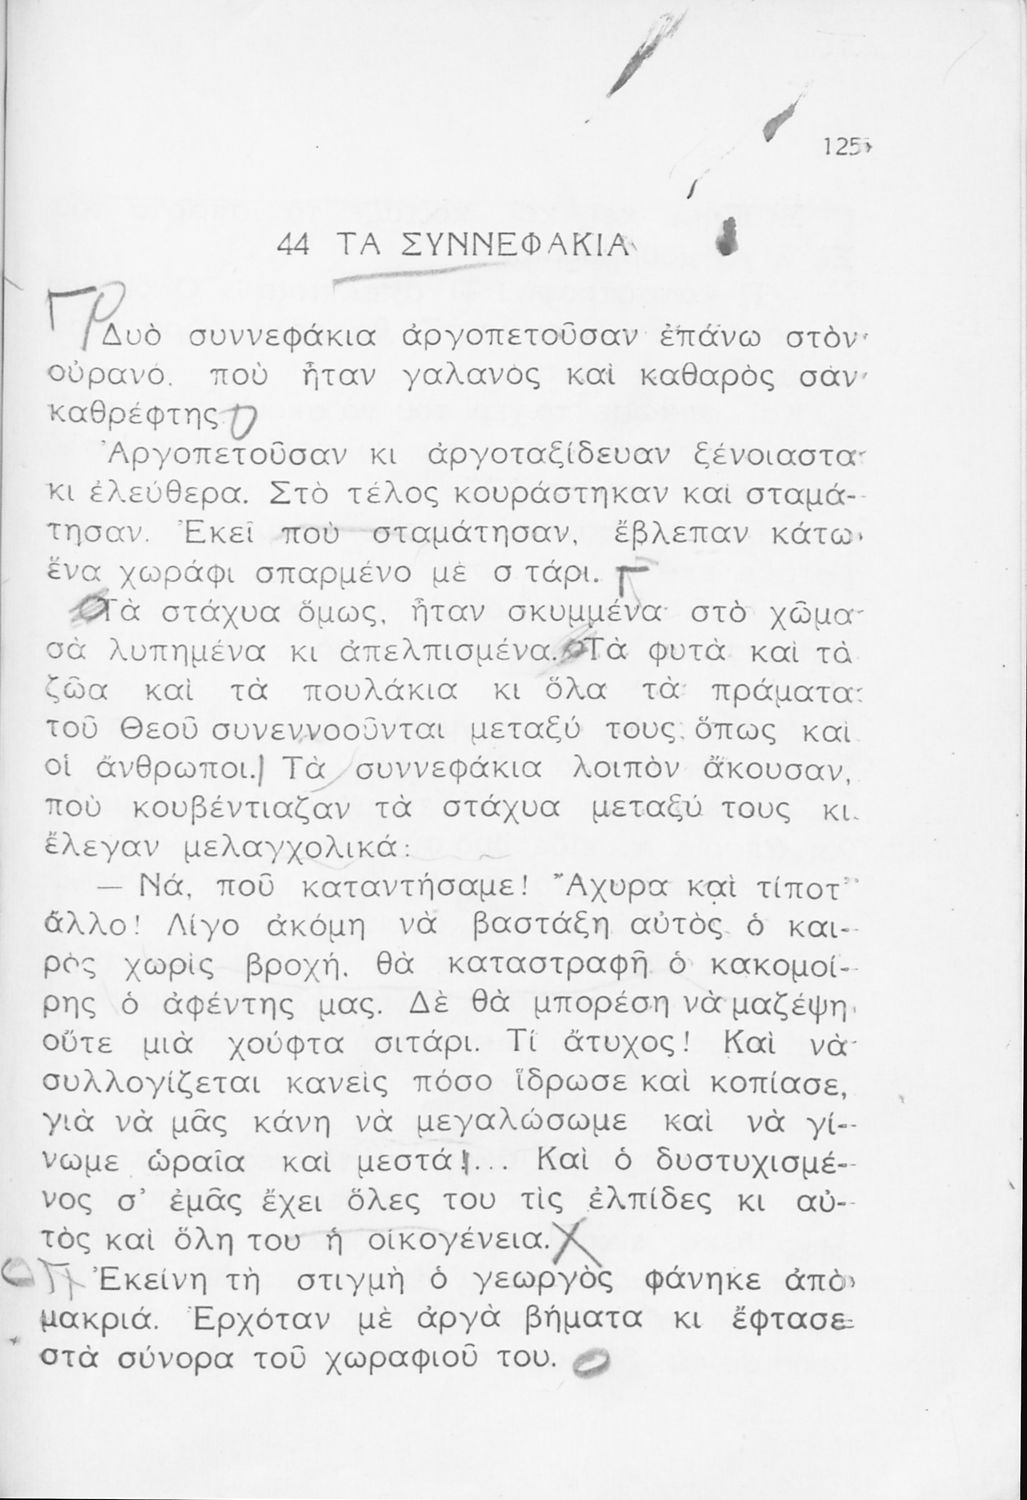 125
44 ΤΑ ΣΥΝΝΕΦΑΚΙΑ
Δυὸ συννεφάκια ἀργοπετοῦσαν ἐπάνω στὸν
οὐρανό, ποὺ ἦταν γαλανὸς καὶ καθαρὸς σὰν
καθρέφτης.
Ἀργοπετοῦσαν κι ἀργοταξίδευαν ξένοιαστα
κι ἐλεύθερα. Στὸ τέλος κουράστηκαν καὶ σταμά-
τησαν. Ἐκεῖ ποὺ σταμάτησαν, ἔβλεπαν κάτω
ἕνα χωράφι σπαρμένο μὲ σ τάρι.
Τὰ στάχυα ὅμως, ἦταν σκυμμένα στὸ χῶμα
σὰ λυπημένα κι ἀπελπισμένα. Τὰ φυτὰ καὶ τὰ
ζῶα καὶ τὰ πουλάκια κι ὅλα τὰ πράματα
τοῦ Θεοῦ συνεννοοῦνται μεταξύ τους, ὅπως καὶ
οἱ ἄνθρωποι. Τὰ συννεφάκια λοιπὸν ἄκουσαν,
ποὺ κουβέντιαζαν τὰ στάχυα μεταξύ τους κι
ἔλεγαν μελαγχολικά:
— Νά, ποῦ καταντήσαμε! Ἄχυρα καὶ τίποτ'
ἄλλο! Λίγο ἀκόμη νὰ βαστάξη αὐτὸς ὁ και-
ρὸς χωρὶς βροχή, θὰ καταστραφῆ ὁ κακομοί-
ρης ὁ ἀφέντης μας. Δὲ θὰ μπορέση νὰ μαζέψη
οὔτε μιὰ χούφτα σιτάρι. Τί ἄτυχος! Καὶ νὰ
συλλογίζεται κανεὶς πόσο ἵδρωσε καὶ κοπίασε,
γιὰ νὰ μᾶς κάνη νὰ μεγαλώσωμε καὶ νὰ γί-
νωμε ὡραῖα καὶ μεστά!... Καὶ ὁ δυστυχισμέ-
νος σ' ἐμᾶς ἔχει ὅλες του τὶς ἐλπίδες κι αὐ-
τὸς καὶ ὅλη του ἡ οἰκογένεια.
Ἐκείνη τὴ στιγμὴ ὁ γεωργὸς φάνηκε ἀπὸ
μακριά. Ἐρχόταν μὲ ἀργὰ βήματα κι ἔφτασε
στὰ σύνορα τοῦ χωραφιοῦ του.